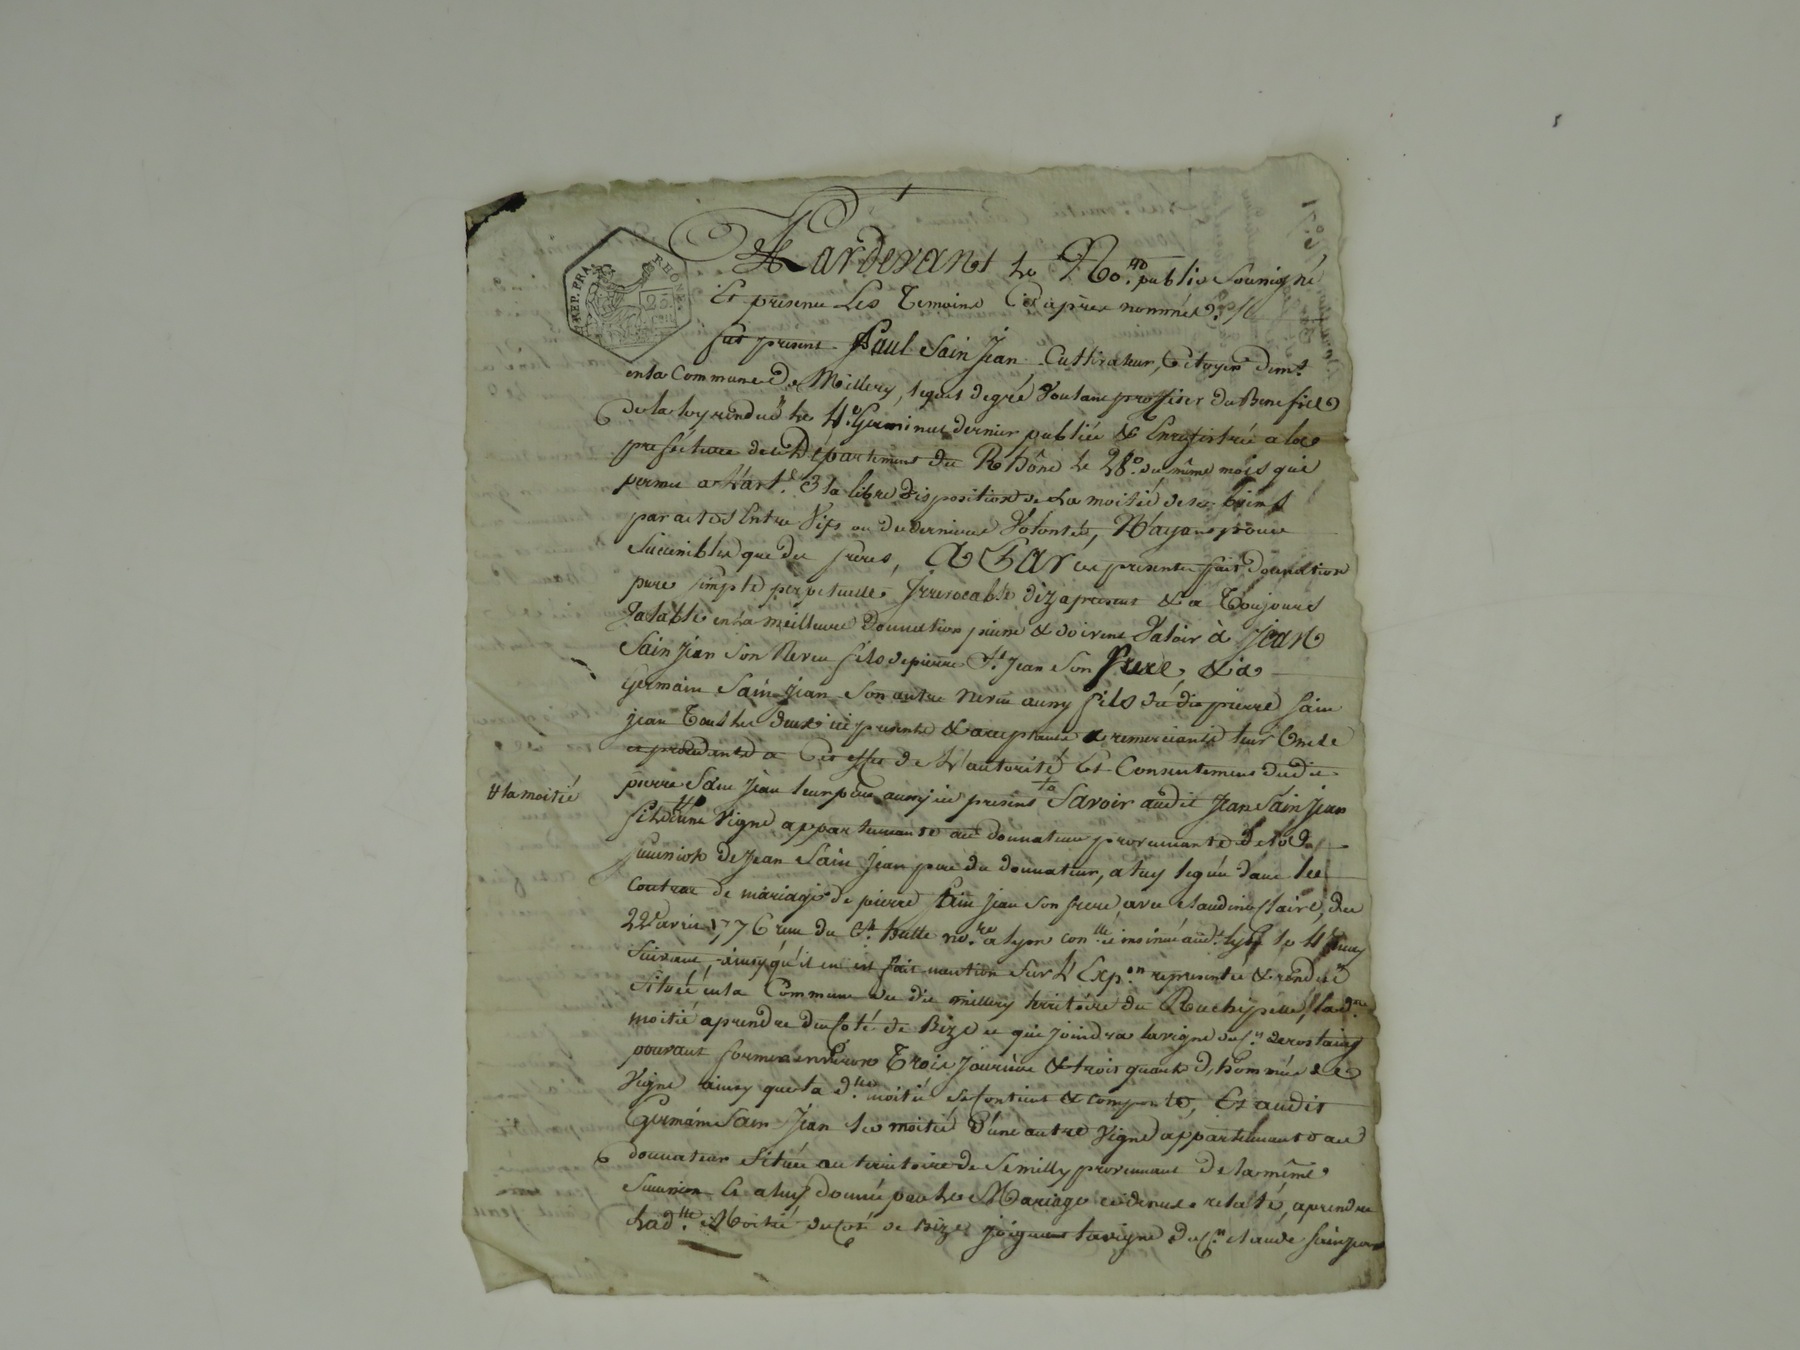 REP. FRA. RHONE
25.
Pardevant Le No.re public Sousigné
Et presence Les Temoins Cy après nommés
fut present Paul Sain Jean Cultivateur, Citoyen dem.t
en la Commune De Millery, lequel degré Voulant proffiter du Benefice
de la loy rendue Le 4.e Germinal dernier publiée & Enregistrée a la
préfécture de Département du Rhône le 28.e du même mois qui
permet a L'art.e 3 la libre disposition de La moitié de ses biens
par actes Entre Vifs ou de dernieres Volontés, N'ayant pour
Succesibles que des freres, A Par ces presentes fait donnation
pure simple perpetuelle Irrevocable diz a present & a Toujours
Valable en La meilleure Donnation puisse & doivent Valoir à Jean
Sain Jean son Neveu fils de pierre S.t Jean Son frere, & à
Germain Sain Jean Son autre neveu aussy fils du dit pierre Sain
jean Tous les deux icy presents & acceptants & remerciants leur Oncle
et procedants a Cet effet de L'autorité Et Consentement dudit
pierre Sain Jean leur pere aussy icy present Savoir audit Jean Sain Jean
# la moitié
fils # d'une Vigne appartenante au donnateur provenante de la
succession de Jean Sain Jean pere du donnateur, a luy leguée dans le
Contrat de mariage de pierre Sain Jean Son frere avec Claudine Claire, du
22 avril 1776 reçu du C.n no.re a lyon con.llé & insinué aud.t lyon le 4
Suivant, ainsy qu'il en est fait mention Sur L'Exp.on representée & rendue
Située en la Commune du dit millery territoire du Ruchipelle, lad.e
moitié a prendre du Coté de Bize et qui joindra la vigne du C.n
pouvant former environ Trois Journées & trois quarts d'hommée de
Vigne ainsy que la d.te moitié se Contient & comporte, Et audit
Germain Sain Jean la moitié d'une autre Vigne appartenante au
donnateur Située au territoire de Semilly provenant de la même
Succession Et a luy donnée par Le Mariage cy devant relaté, a prendre
Lad.tte Moitié du Coté de Bize joignant la vigne du C.n claude Sain jean